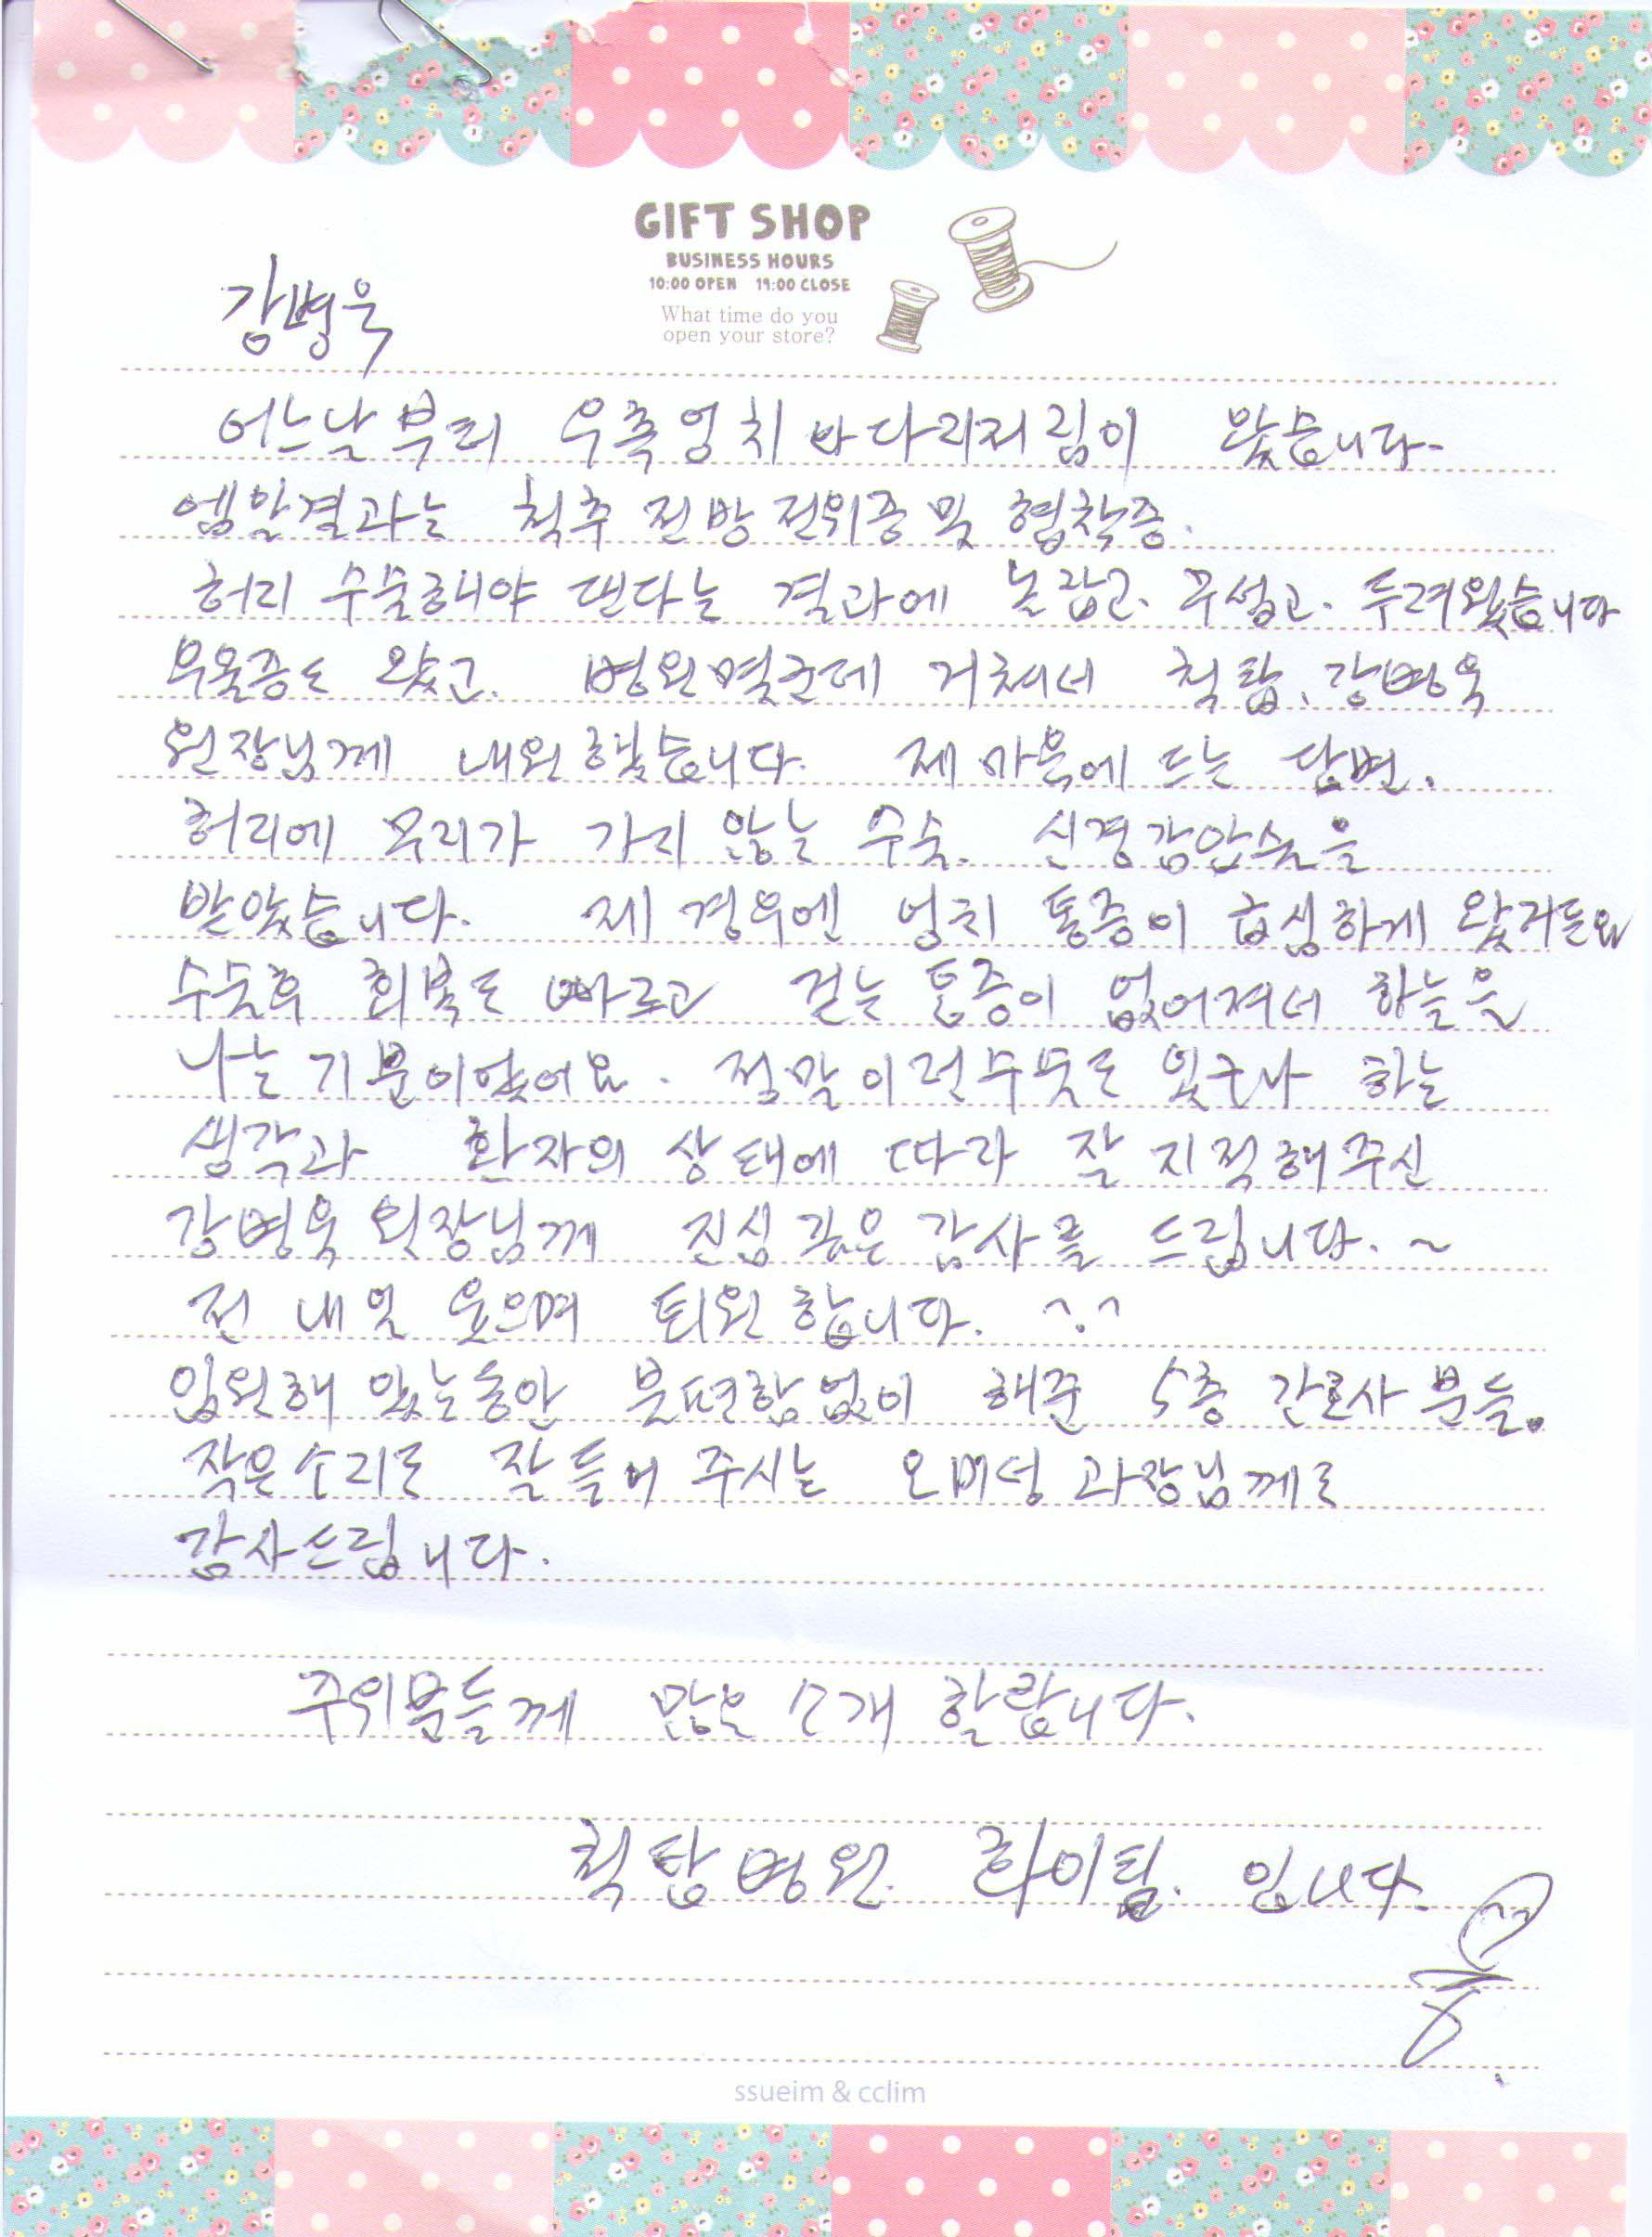 GIFT SHOP
BUSINESS HOURS
10:00 OPEN 19:00 CLOSE
What time do you
open your store?
강병욱
어느날부터 우측엉치 바 다리저림이 왔습니다.
엠알결과는 척추 전방 전위증 및 협착증.
허리 수술해야 댄다는 결과에 놀랍고. 무섭고. 두려웠습니다
우울증도 왔고. 병원 몇군데 거쳐서 척탑. 강병욱
원장님께 내원했습니다. 제 마음에 드는 답변.
허리에 무리가 가지 않는 수술. 신경감압술을
받았습니다. 제 경우엔 엉치 통증이 급심하게 왔거든요
수술후 회복도 빠르고 걷는 통증이 없어져서 하늘을
나는 기분이었어요. 정말 이런수술도 있구나 하는
생각과 환자의 상태에 따라 잘 지적해주신
강병욱 원장님께 진심 깊은 감사를 드립니다. ~
전 내일 웃으며 퇴원 합니다. ^.^
입원해 있는동안 불편함없이 해준 5층 간호사 분들.
작은소리도 잘 들어 주시는 오미영 과장님께도
감사드립니다.
주위분들께 많은 소개 할랍니다.
척탑병원. 화이팅. 입니다.
ssueim & cclim